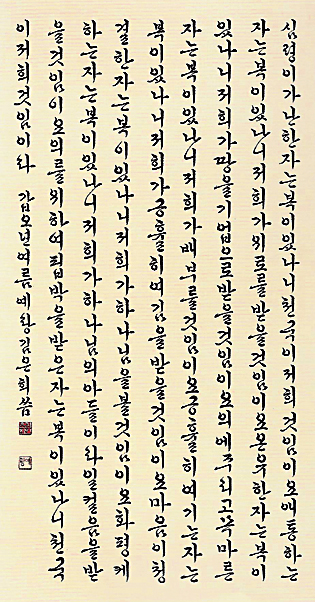 심령이가난한자는복이있나니천국이저희것임이오애통하는
자는복이있나니저희가위로를받을것임이오온유한자는복이
있나니저희가땅을기업으로받을것임이오의에주리고목마른
자는복이있나니저희가배부를것임이오긍휼히여기는자는
복이있나니저희가긍휼히여김을받을것임이오마음이청
결한자는복이있나니저희가하나님을볼것임이오화평케
하는자는복이있나니저희가하나님의아들이라일컬음을받
을것임이오의를위하여핍박을받은자는복이있나니천국
이저희것임이라 갑오년여름 김은희씀